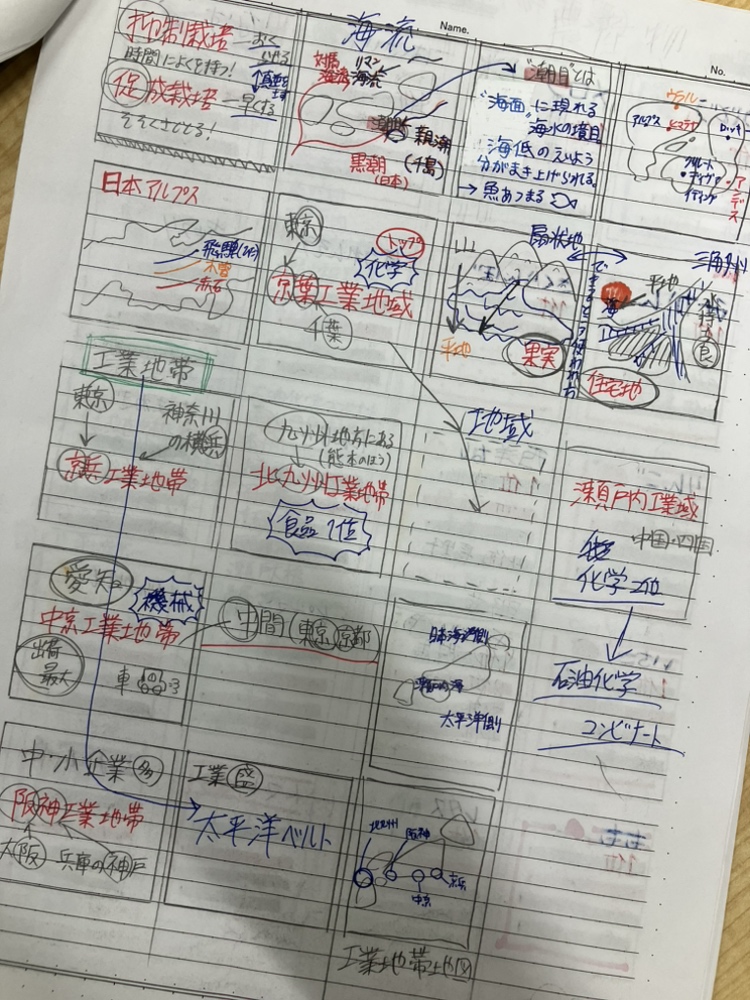 Name.
No.
抑制栽培→おくらせる
時間によくを持つ!
促成栽培→早くする
そくそくさとどる!
海流
対馬海流
リマン海流
親潮
(千島)
黒潮
(日本)
"潮目"とは
"海面"に現れる
海水の境目
海低のえいよう
分がまき上げられる。
→魚あつまる
ウラル
アルプス
ヒマラヤ
ロッキー
アンデス
グレート
ディヴァ
イディング
日本アルプス
飛驒(北)
木曽
赤石
東京
トップ
化学
京葉工業地域
千葉
扇状地
平地
果実
三角州
平地
海
住宅地
工業地帯
東京
神奈川
の横浜
京浜工業地帯
九州地方にある
(熊本のほう)
北九州工業地帯
食品1位
地域
瀬戸内工業域
中国・四国
化学2位
石油化学
コンビナート
愛知
機械
中京工業地帯
出荷
最大
車
中間(東京 京都
日本海側
瀬戸内海
太平洋側
中・小企業多
阪神工業地帯
大阪
兵庫の神戸
工業盛
太平洋ベルト
北九州
阪神
京浜
中京
工業地帯地図